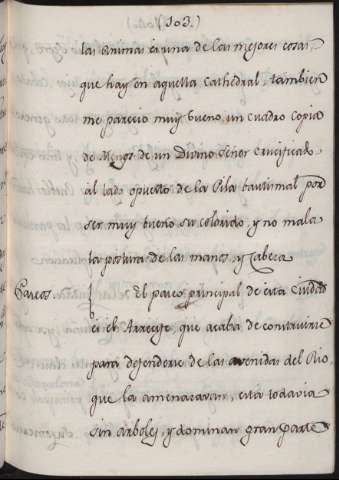 (103.)
las Animas es una de las mejores cosas
que hay en aquella Cathedral, tambien
me parecio muy bueno un cuadro copia
de Mengs de un Divino Señor Crucificado
al lado opuesto de la Pila bautismal por
ser muy bueno su colorido, y no mala
la postura de las manos, y Cabeza
Paseos. El paseo principal de esta Ciudad
es el Arrecife que acaba de construirse
para defenderse de las avenidas del Rio
que la amenazavan, está todavia
sin arboles, y dominan gran parte